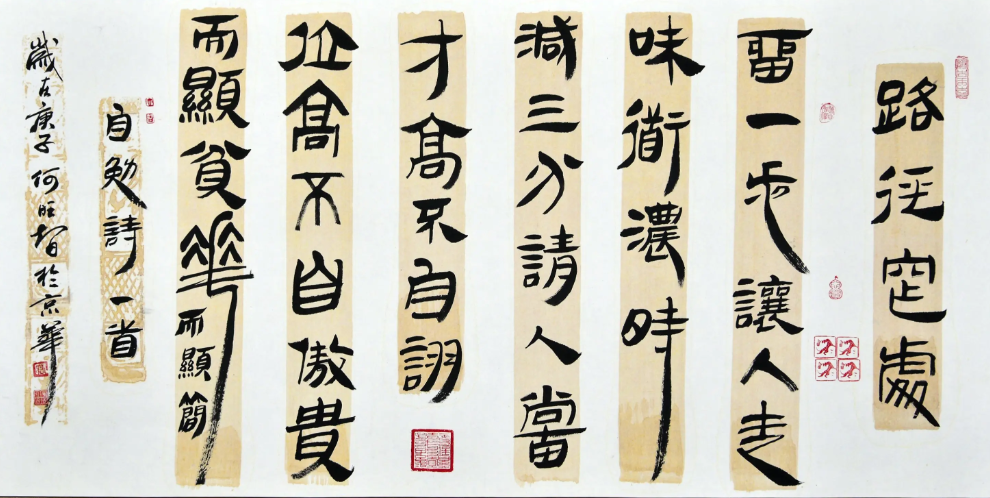 路径窄處
畱一步讓人走
味衜濃時
減三分請人當
才高不自詡
位高不自傲貴
而顯貧華而顯簡
自勉詩一首
歲在庚子何旺智於京華